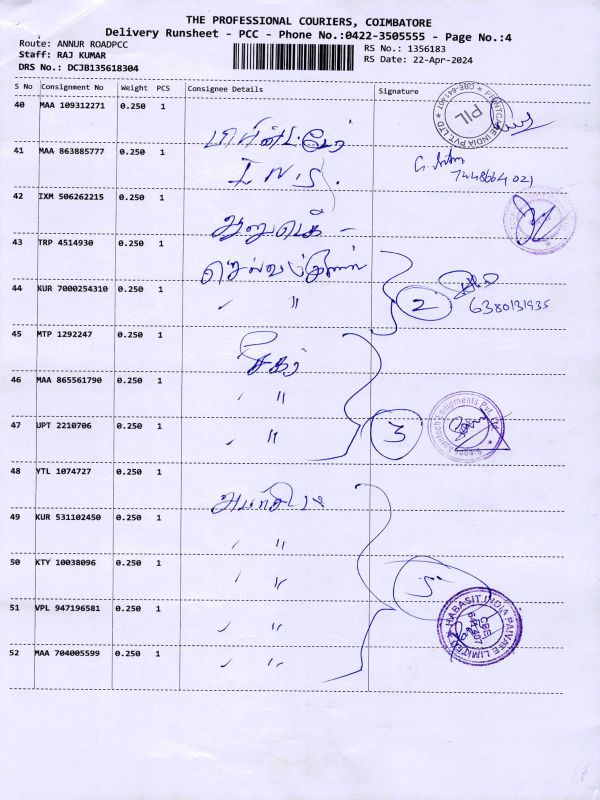 THE PROFESSIONAL COURIERS, COIMBATORE
Delivery Runsheet - PCC - Phone No.:0422-3505555 - Page No.:4
Route: ANNUR ROADPCC
Staff: RAJ KUMAR
DRS No.: DCJB135618304
RS No.: 1356183
RS Date: 22-Apr-2024
S No Consignment No Weight PCS Consignee Details Signature
40 MAA 109312271 0.250 1
PRINTCARE INDIA PVT. LTD ★ CBE-641407 ★
PIL
41 MAA 863885777 0.250 1 I N S.
7448664021
42 IXM 506262215 0.250 1
43 TRP 4514930 0.250 1
44 KUR 7000254310 0.250 1 " 2 6380131935
45 MTP 1292247 0.250 1 சேகர்
46 MAA 865561790 0.250 1 "
47 UPT 2210706 0.250 1 " 3
48 YTL 1074727 0.250 1
49 KUR 531102450 0.250 1 "
50 KTY 10038096 0.250 1 " 5
51 VPL 947196581 0.250 1 "
HABASIT INDIA PRIVATE LIMITED ★
52 MAA 704005599 0.250 1 "